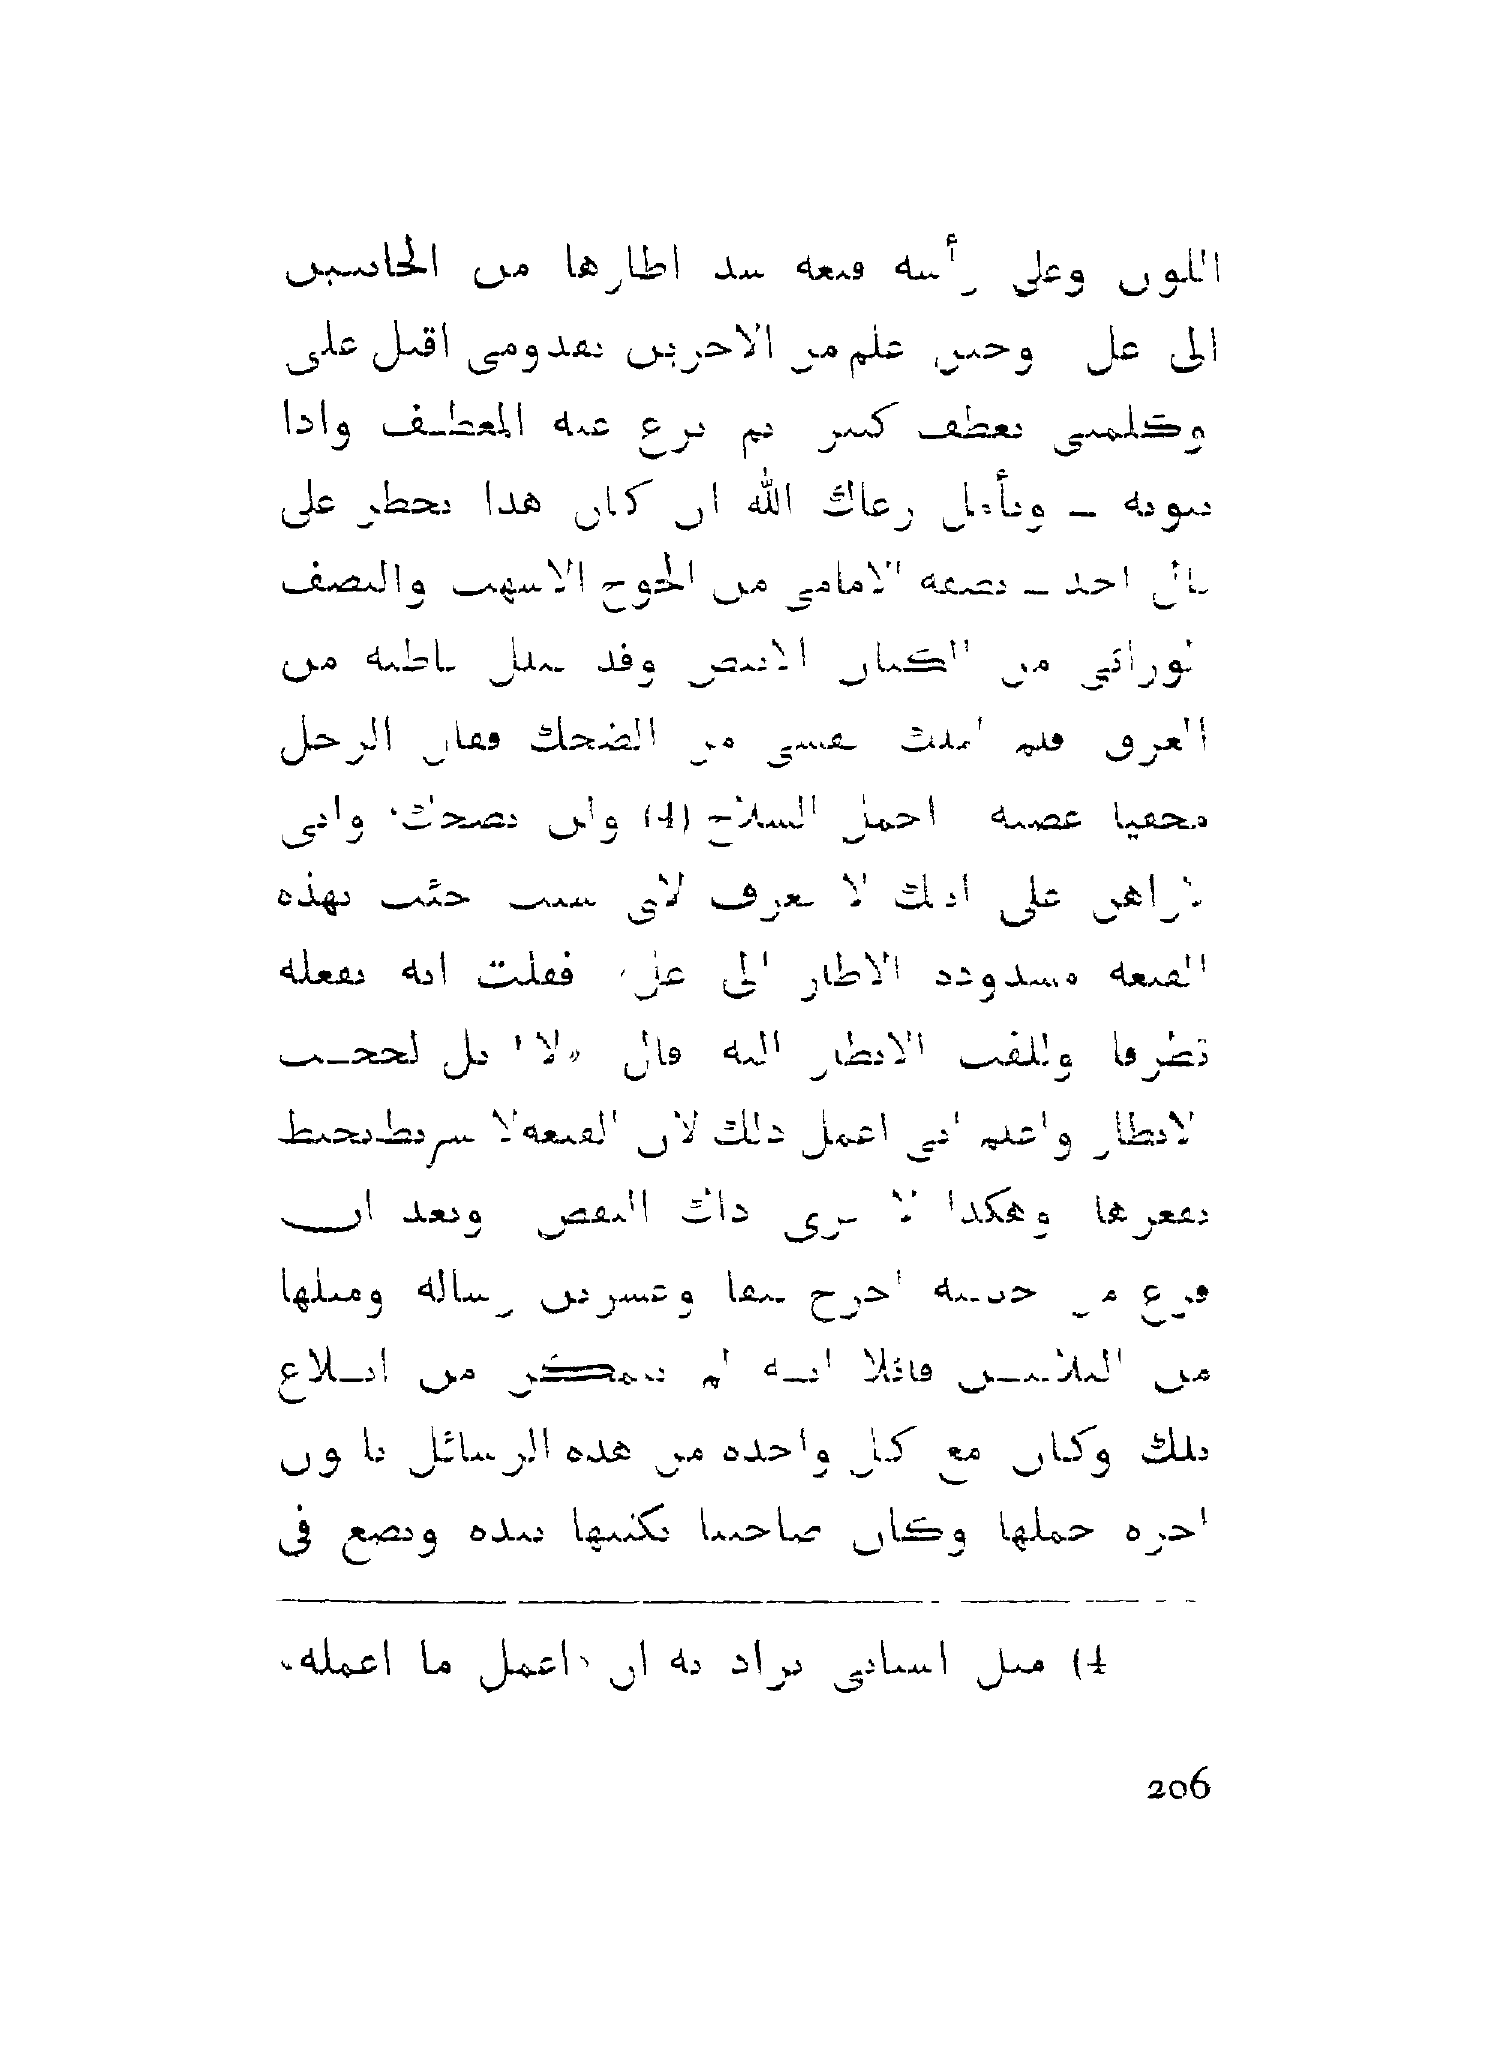 اللون وعلى رأسه قبعة شد اطارها من الجانبين
الى عل وحين علم من الآخرين بقدومي اقبل على
وكلمني بعطف كبير ثم نزع عنه المعطف واذا
بثوبه – وتأمل رعاك الله ان كان هذا يخطر على
بال احد – نصفه الامامي من الجوخ الاشهب والنصف
الوراثي من الكتان الابيض وقد تبلل باطنه من
العرق فلم املك نفسي من الضحك فقال الرجل
مخفيا غضبه احمل السلاح (1) ولن تضحك، وانى
لاراهن على انك لا تعرف لاي سبب جئت بهذه
القبعة مسدودة الاطار الى عل، فقلت انه يفعله
تظرفا وللفت الانظار اليه قال «لا ! بل لحجب
الانظار واعلم انى اعمل ذلك لان القبعة لا شريط يحيط
بقعرها وهكذا لا يرى ذاك النقص وبعد ان
فرغ من حديثه اخرج نيفا وعشرين رسالة ومثلها
من البلاتيس قائلا انه لم يتمكن من ابلاغ
تلك وكان مع كل واحدة من هذه الرسائل نا ون
اجرة حملها وكان صاحبنا يكتبها بيده ويضع في
1) مثل اسبانى يراد به ان «اعمل ما اعمله.
206